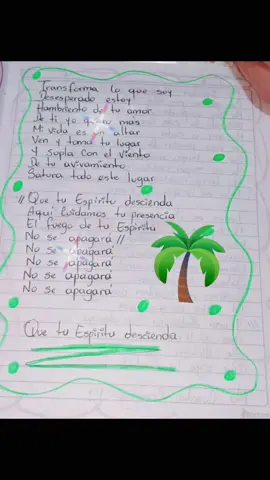 Transforma lo que soy
Desesperado estoy
Hambriento de tu amor
De ti yo quiero mas
Mi vida es un altar
Ven y toma tu lugar
Y sopla con el viento
De tu avivamiento
Satura todo este lugar
// Que tu Espiritu descienda
Aquí Cuidamos tu presencia
El fuego de tu Espiritu
No se apagará //
No se apagará
No se apagará
No se apagará
No se apagará
Que tu Espiritu descienda